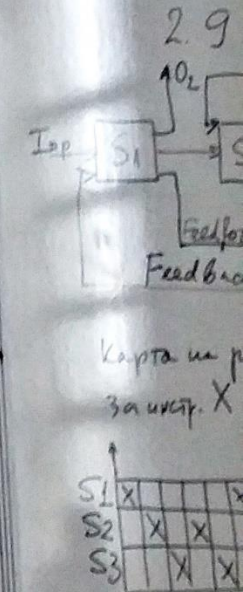 2.9
O2
Inp S1 S
Feedfo
Feedbac
Карта на р
За инстр. X
S1 X X
S2 X X
S3 X X